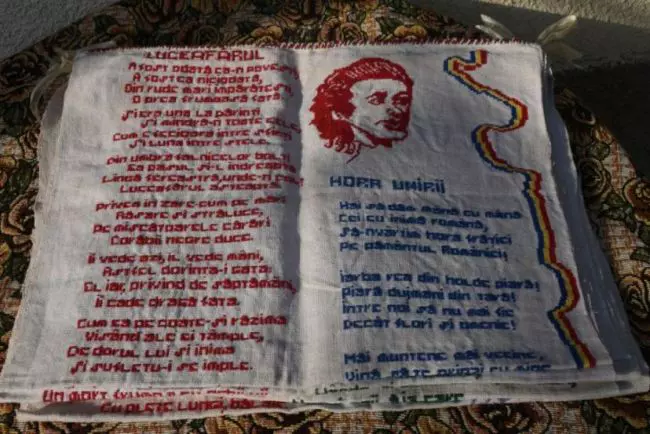 LUCEAFARUL
A fost odată ca-n povești
A fost ca niciodată,
Din rude mari împărătești,
O prea frumoasă fată.
Și era una la părinți
Și mîndră-n toate cele,
Cum e fecioara între sfinți
Și luna între stele.
Din umbra falnicelor bolți
Ea pasul și-l îndreaptă
Lîngă fereastră, unde-n
Luceafărul așteaptă
Privea în zare cum pe mări
Răsare și străluce,
Pe mișcătoarele cărări
Corăbii negre duce.
Îl vede azi, îl vede mâni,
Astfel dorința-i gata;
El iar, privind de săptămâni,
Îi cade dragă fata.
Cum ea pe coate-și răzima
Visând ale ei tâmple,
De dorul lui și inima
Și sufletu-i se împle.
Un
Cu plete lungi,
HORA UNIRII
Hai să dăm mână cu mână
Cei cu inimă română,
Să-nvârtim hora frăției
Pe pământul României!
Iarba rea din holde piară!
Piară dușmani din țară!
Între noi să nu mai fie
Decât flori și omenie!
Măi muntene măi vecine,
Vină